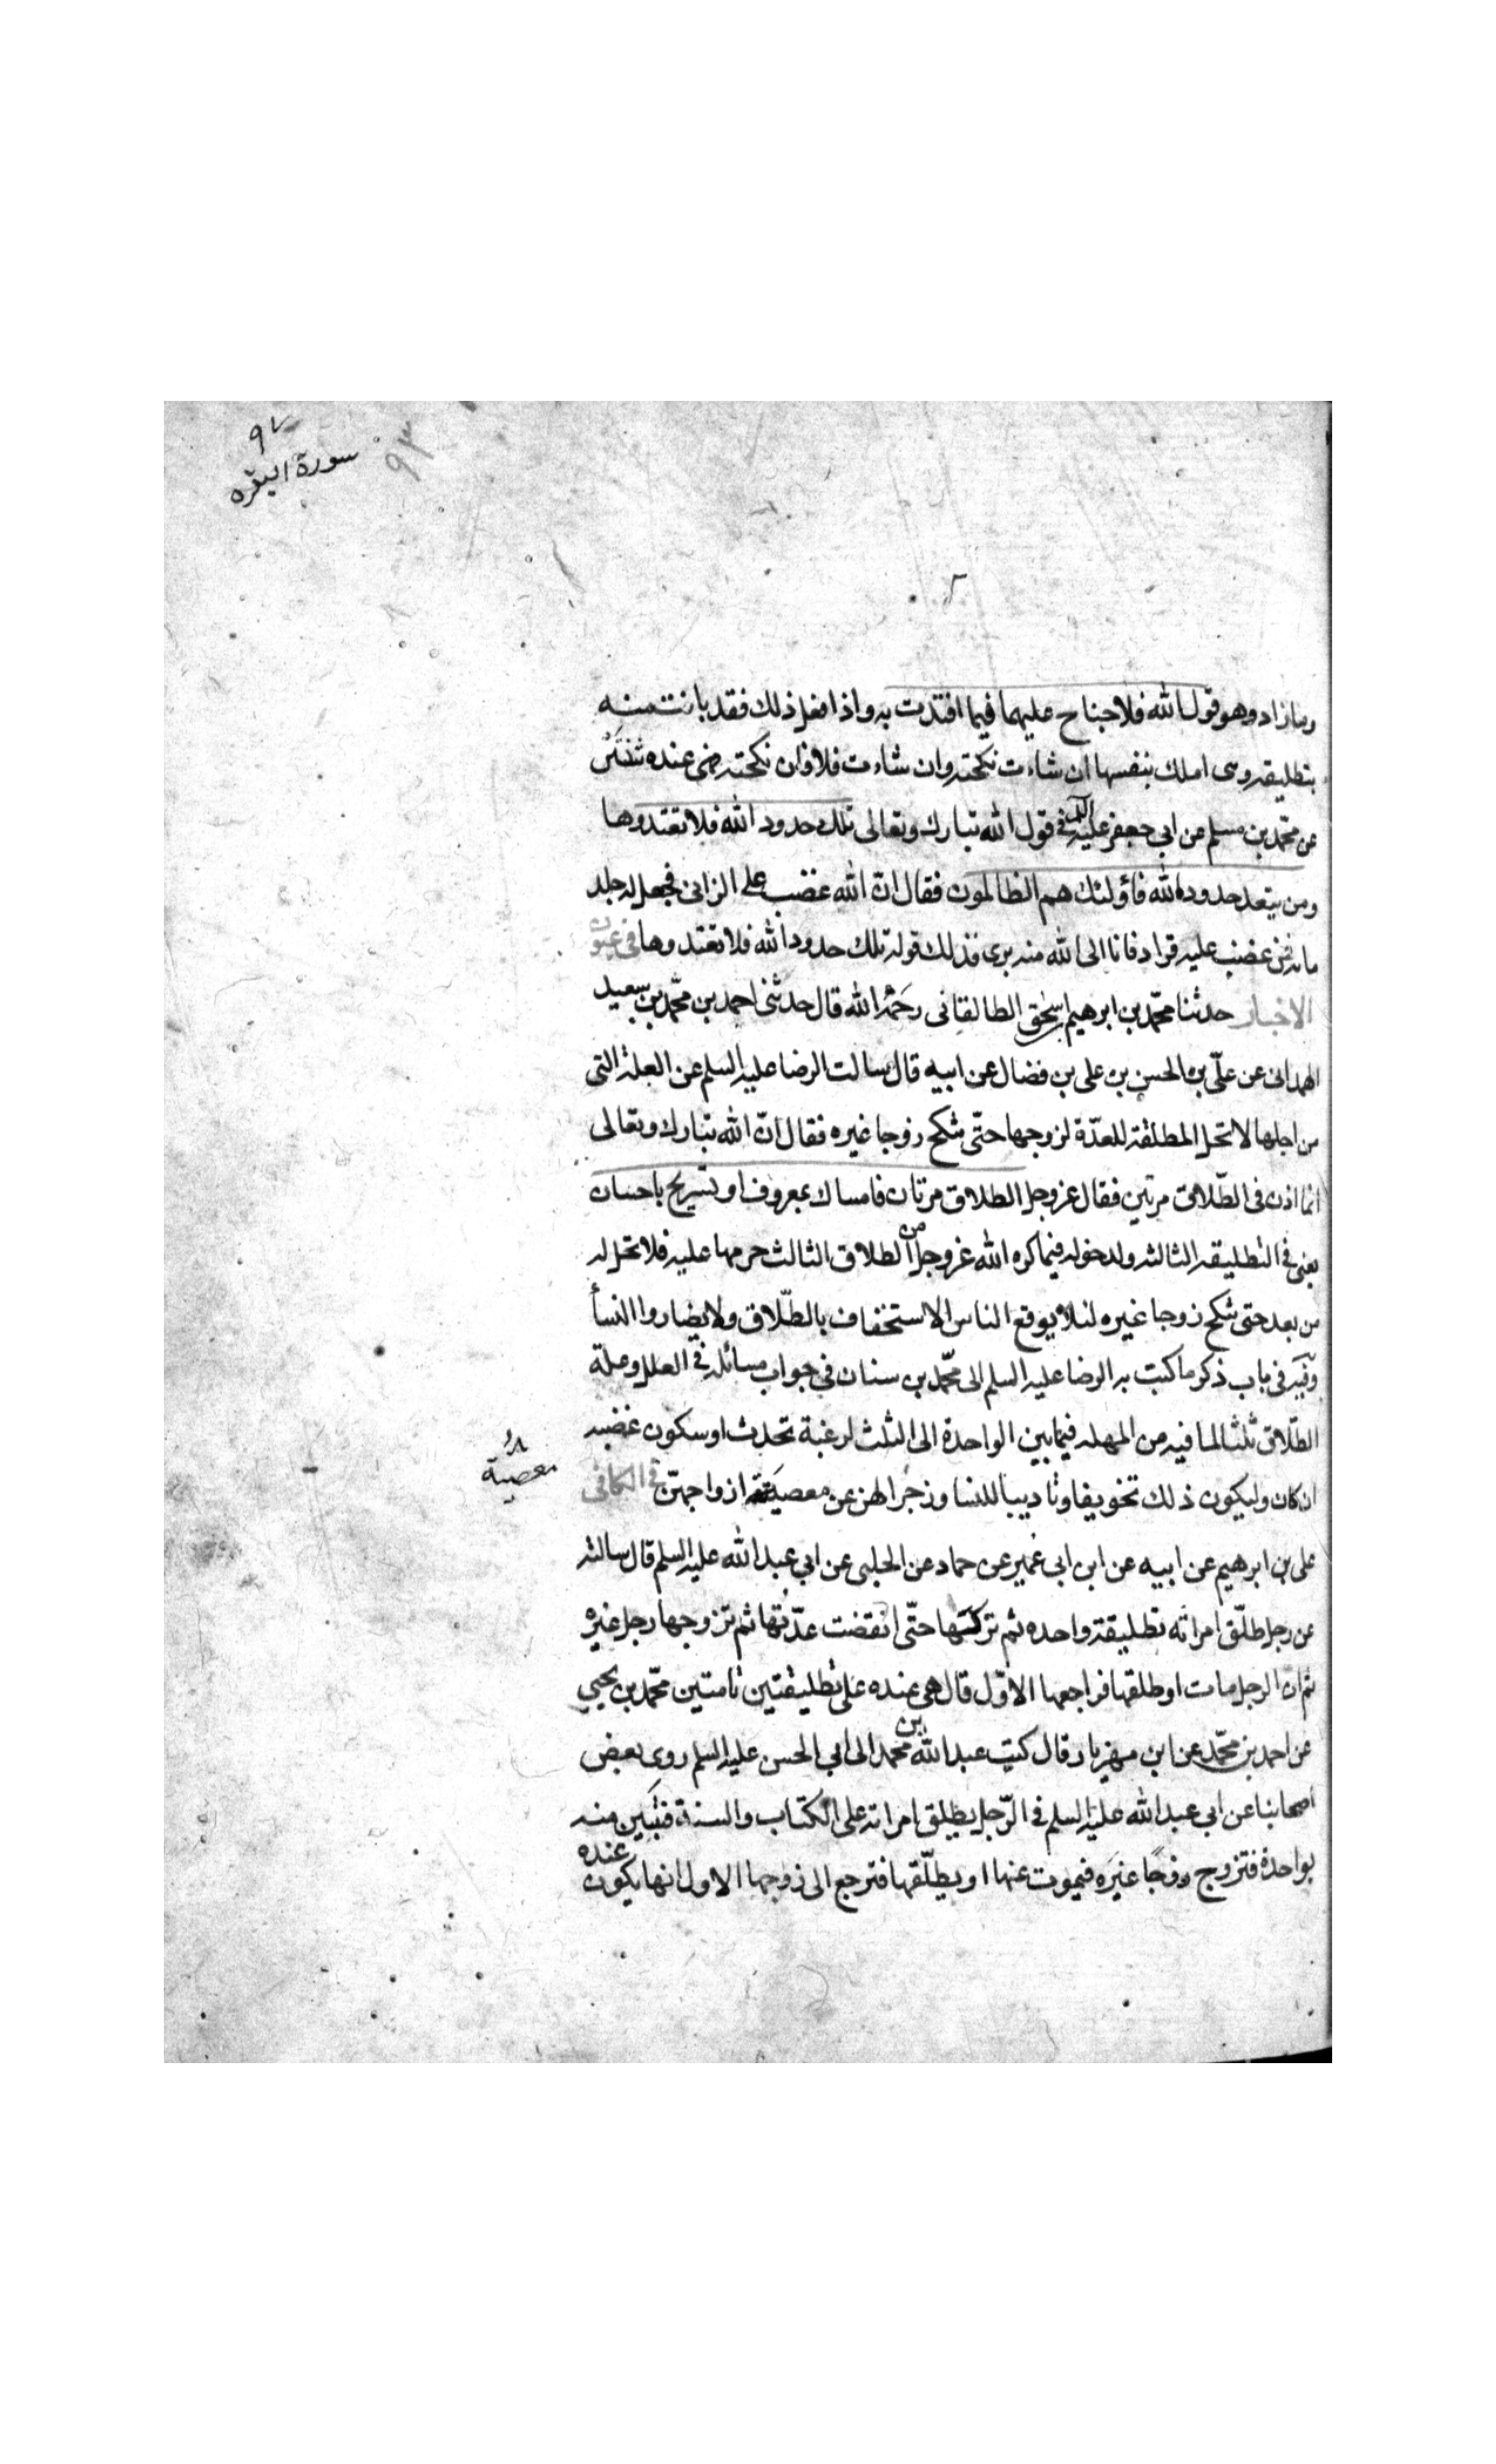 ٩٧
سورة البقره
وما زاد وهو قول الله فلا جناح عليهما فيما افتدت به واذا فعل ذلك فقد بانت منه
بتطليقه وهى املك بنفسها ان شاءت نكحته وان شاءت فلا فان نكحته فهى عنده ثنتين
عن محمّد بن مسلم عن ابي جعفر عليه السلم فى قول الله تبارك وتعالى تلك حدود الله فلا تعتدوها
ومن يتعد حدود الله فأولئك هم الظالمون فقال انّ الله غضب على الزانى فجعل له جلد
مائه فمن غضب عليه فزاد فانا الى الله منه برى فذلك قوله تلك حدود الله فلا تعتدوها فى عيون
الاخبار حدثنا محمّد بن ابرهيم اسحٰق الطالقانى رحمه الله قال حدثنى احمد بن محمّد بن سعيد
الهمدانى عن علّى بن الحسن بن على بن فضال عن ابيه قال سالت الرضا عليه السلم عن العلة التى
من اجلها لا تحل المطلقة للعدّة لزوجها حتّى تنكح زوجا غيره فقال انّ الله تبارك وتعالى
انما اذن فى الطّلاق مرتين فقال عز وجل الطلاق مرتان فامساك بمعروف او تسريح باحسان
يعنى فى التطليقه الثالثه ولدخوله فيما كره الله عز وجل من الطلاق الثالث حرمها عليه فلا تحل له
من بعد حتى تنكح زوجا غيره لئلا يوقع الناس الاستخفاف بالطّلاق ولا يضاروا النسأ
وفيه فى باب ذكر ما كتب به الرضا عليه السلم الى محّمد بن سنان فى جواب مسائله فى العلل وعلة
الطّلاق ثلثا لما فيه من المهله فيما بين الواحدة الى الثلث لرغبة تحدث او سكون غضبه
ان كان وليكون ذلك تخويفا وتاديبا للنسا وزجرا لهن عن معصية ازواجهنّ فى الكافى
معصية
على بن ابرهيم عن ابيه عن ابن ابى عمير عن حماد عن الحلبى عن ابي عبد الله عليه السلم قال سالته
عن رجل طلّق امراته تطليقة واحده ثم تركتها حتّى انقضت عدّتها ثم تزوجها رجل غيره
ثم انّ الرجل مات او طلقها فراجعها الاوّل قال هى عنده على تطليقتين تامتين محّمد بن يحيى
عن احمد بن محّمد عن ابن مهزيار قال كتب عبد الله بن محمد الى ابي الحسن عليه السلم روى بعض
اصحابنا عن ابي عبد الله عليه السلم فى الرّجل يطلق امراته على الكتاب والسنة فتبين منه
بواحدة فتزوج زوجًا غيره فيموت عنها او يطلّقها فترجع الى زوجها الاول انها يكون عنده